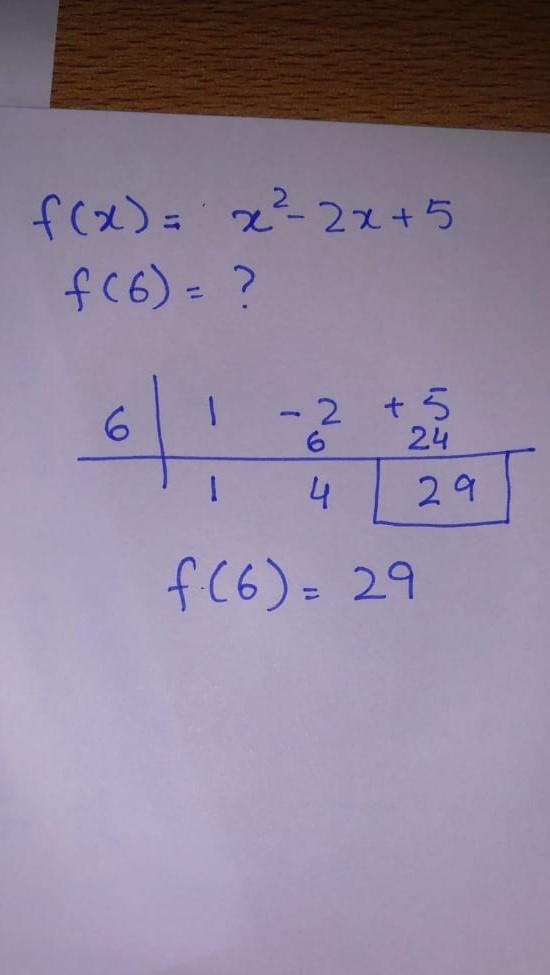 f(x) = x² - 2x + 5
f(6) = ?
6 | 1 - 2 + 5
6 24
1 4 29
f(6) = 29